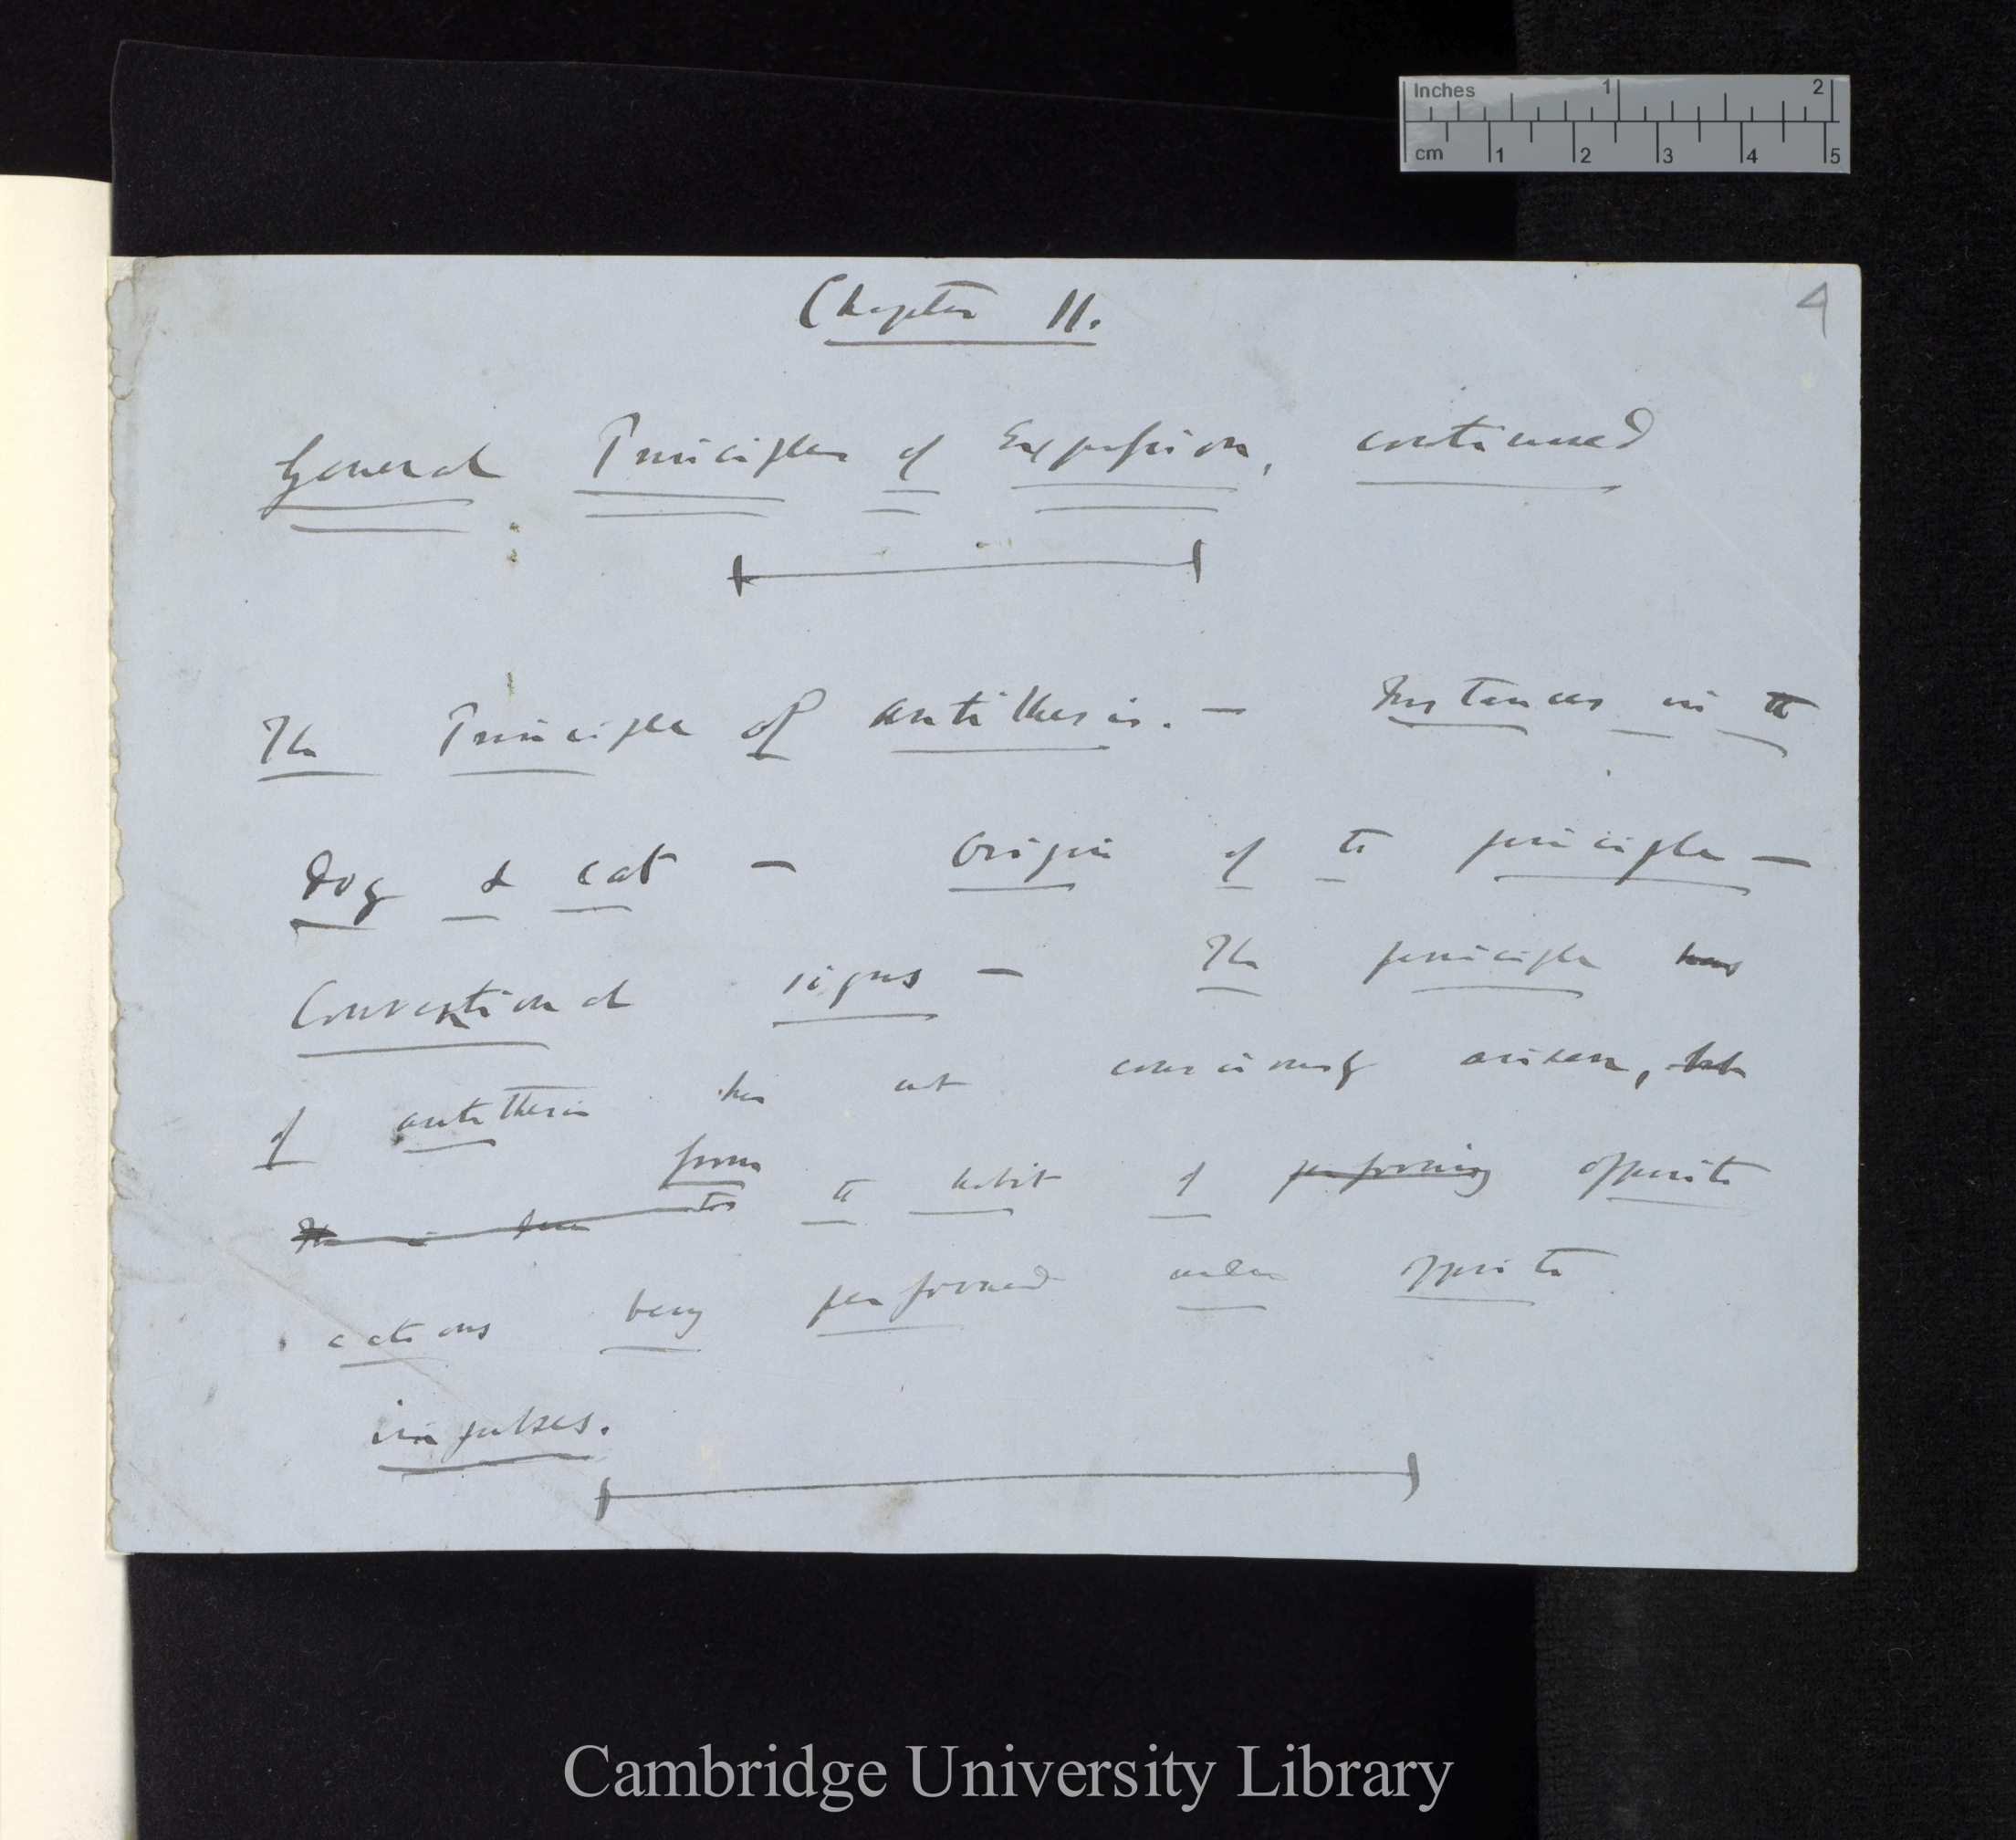 Inches 1 2
cm 1 2 3 4 5
4
Chapter II.
General Principles of Expression, continued
The Principle of antithesis. — Instances in the
Dog & cat — Origin of the principle —
Conventional signs — The principle has
of antithesis has not consciously arisen, but
from
to the habit of performing opposite
actions being performed under opposite
impulses.
Cambridge University Library